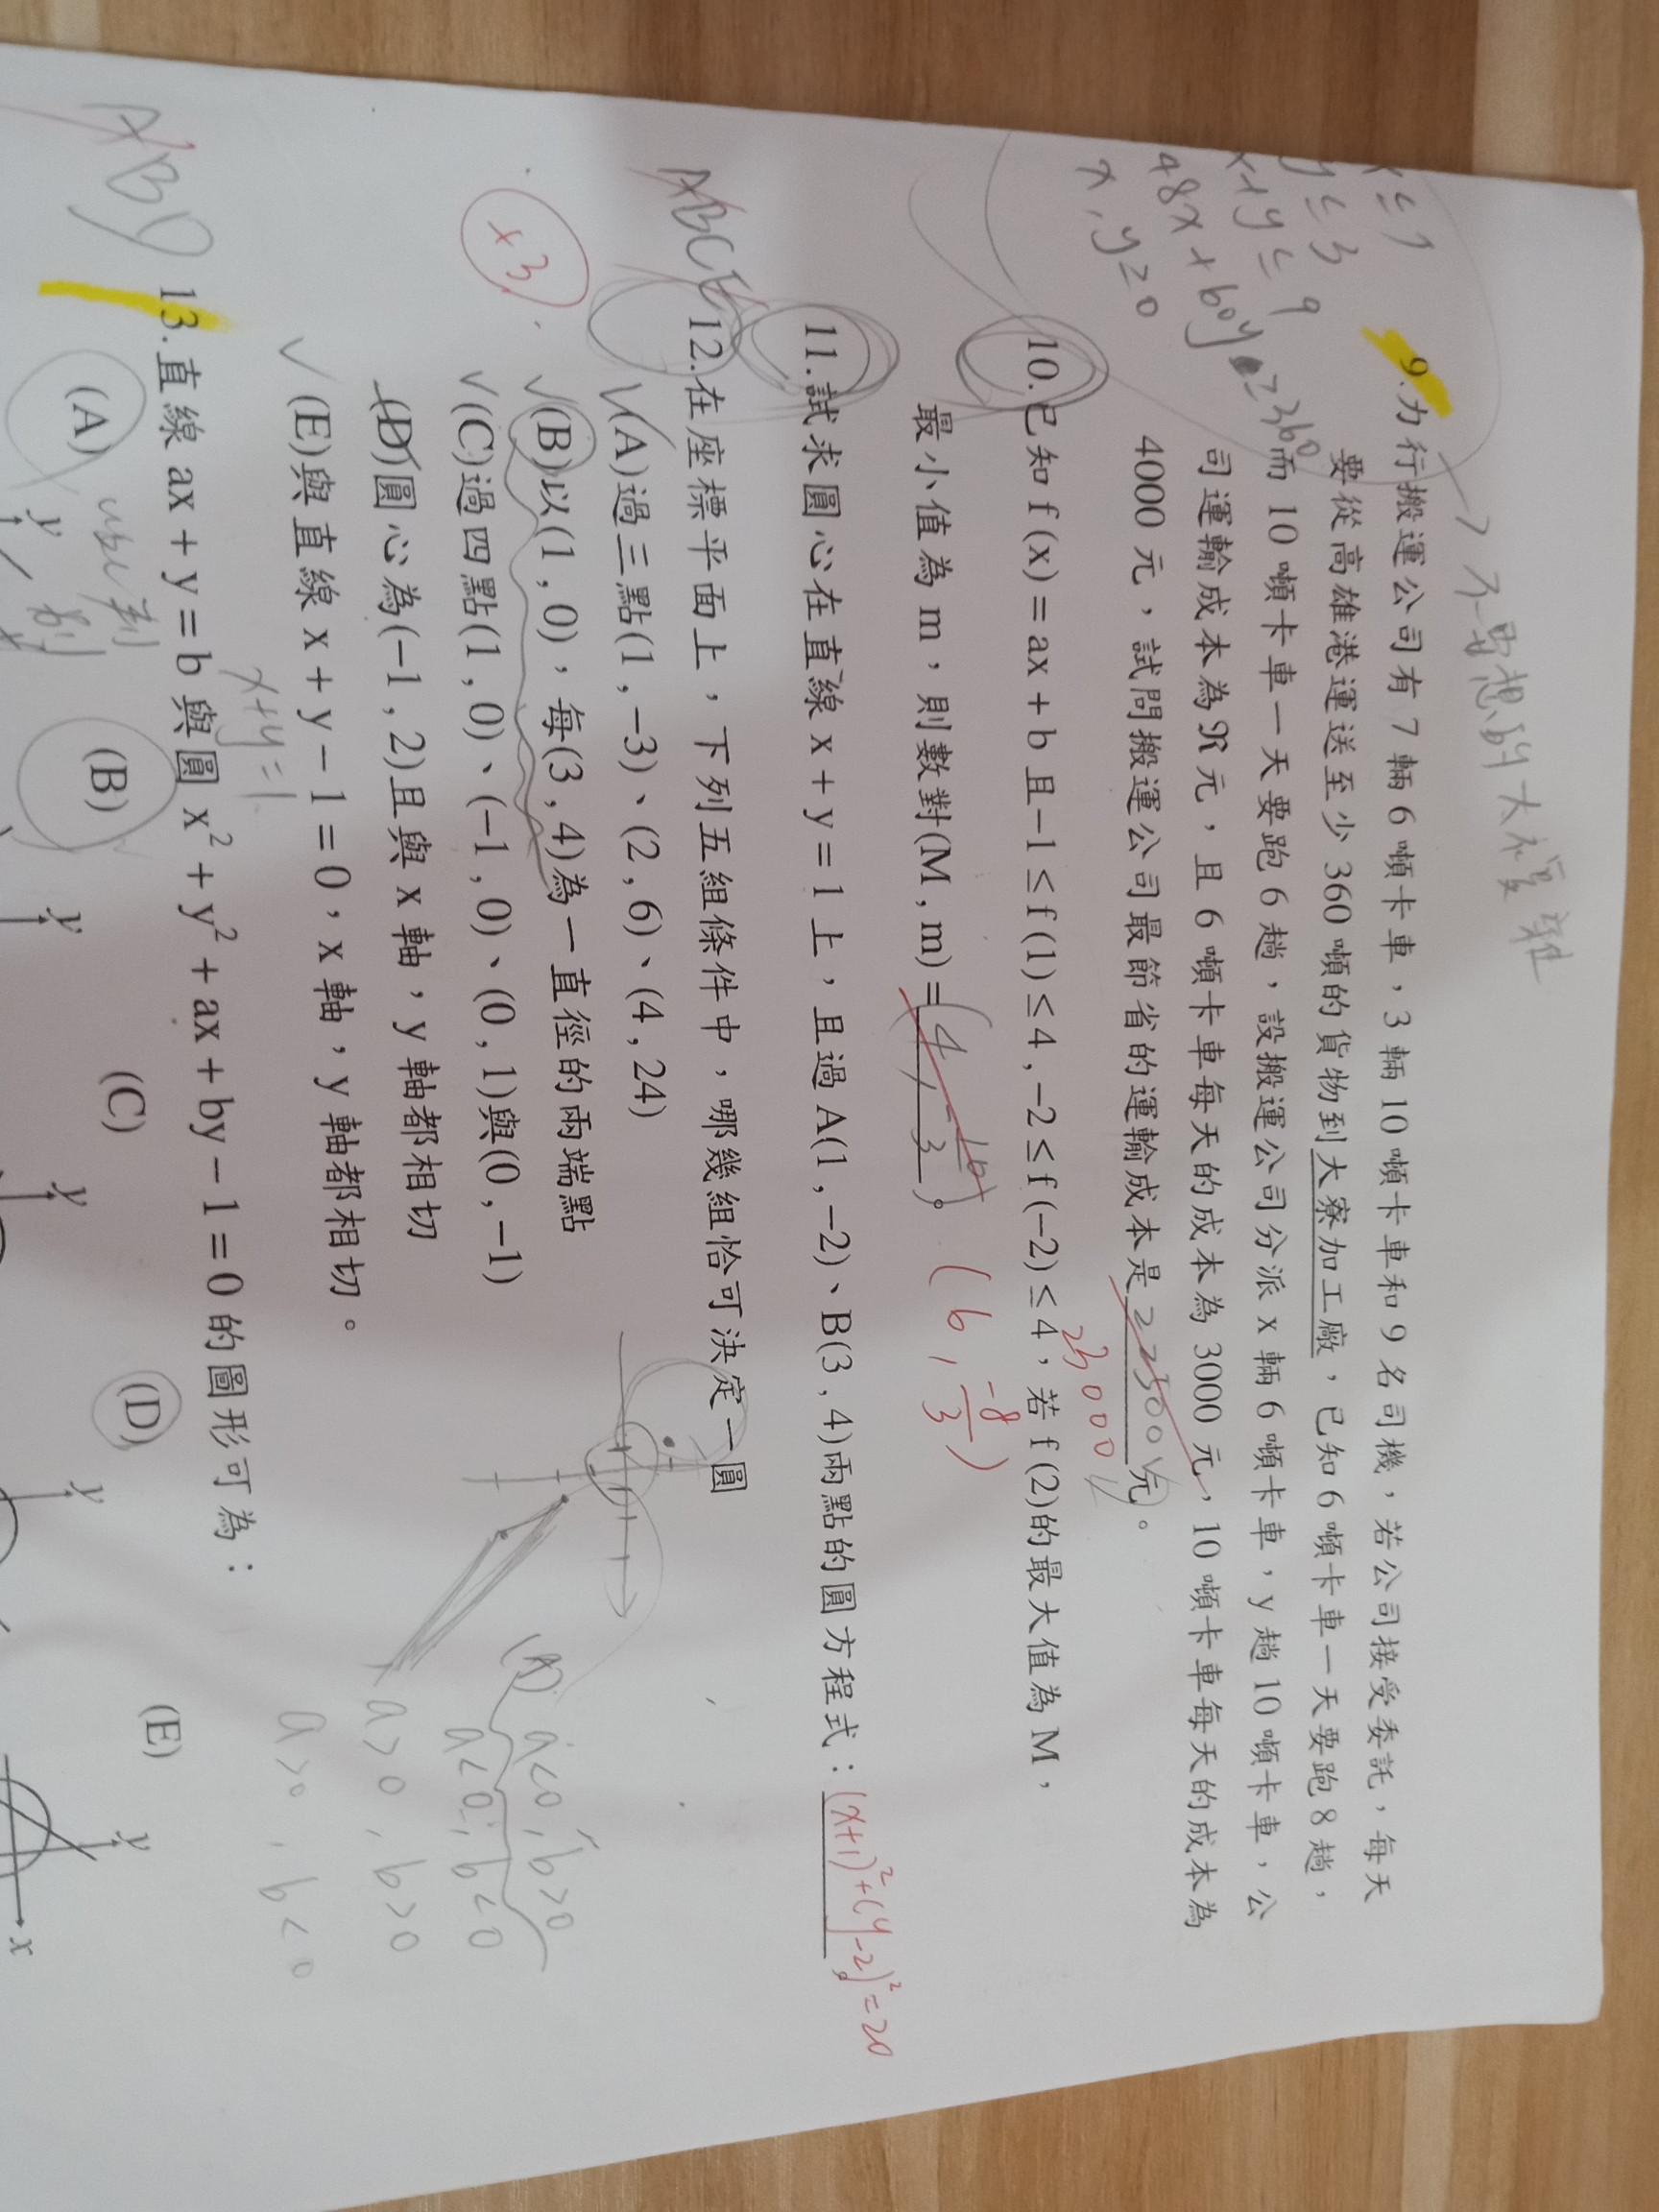 →不要想的太複雜
9.力行搬運公司有 7 輛 6 噸卡車，3 輛 10 噸卡車和 9 名司機，若公司接受委託，每天
要從高雄港運送至少 360 噸的貨物到大寮加工廠，已知 6 噸卡車一天要跑 8 趟，
而 10 噸卡車一天要跑 6 趟，設搬運公司分派 x 輛 6 噸卡車，y 趟 10 噸卡車，公
司運輸成本為元，且 6 噸卡車每天的成本為 3000 元，10 噸卡車每天的成本為
4000 元，試問搬運公司最節省的運輸成本是 22500 元。
23000
x≤7
y≤3
x+y≤9
48x+60y≥360
x,y≥0
10.已知 f(x)=ax+b 且−1≤f(1)≤4,−2≤f(−2)≤4，若 f(2)的最大值為 M，
最小值為 m，則數對(M,m)=(4,-10/3)。 (6,-8/3)
11.試求圓心在直線 x+y=1 上，且過 A(1,−2)、B(3,4)兩點的圓方程式：(x+1)²+(y-2)²=20
ABCE
12.在座標平面上，下列五組條件中，哪幾組恰可決定一圓
✓(A)過三點(1,−3)、(2,6)、(4,24)
✓(B)以(1,0)，每(3,4)為一直徑的兩端點
✓(C)過四點(1,0)、(−1,0)、(0,1)與(0,−1)
(D)圓心為(−1,2)且與 x 軸，y 軸都相切
✓(E)與直線 x+y−1=0，x 軸，y 軸都相切。
×3
x+y=1
(A) a<0,b>0
a<0,b<0
a>0,b>0
a>0,b<0
ABD
13.直線 ax+y=b 與圓 x²+y²+ax+by−1=0 的圖形可為：
(A) (B) (C) (D) (E)
y y y y y
x